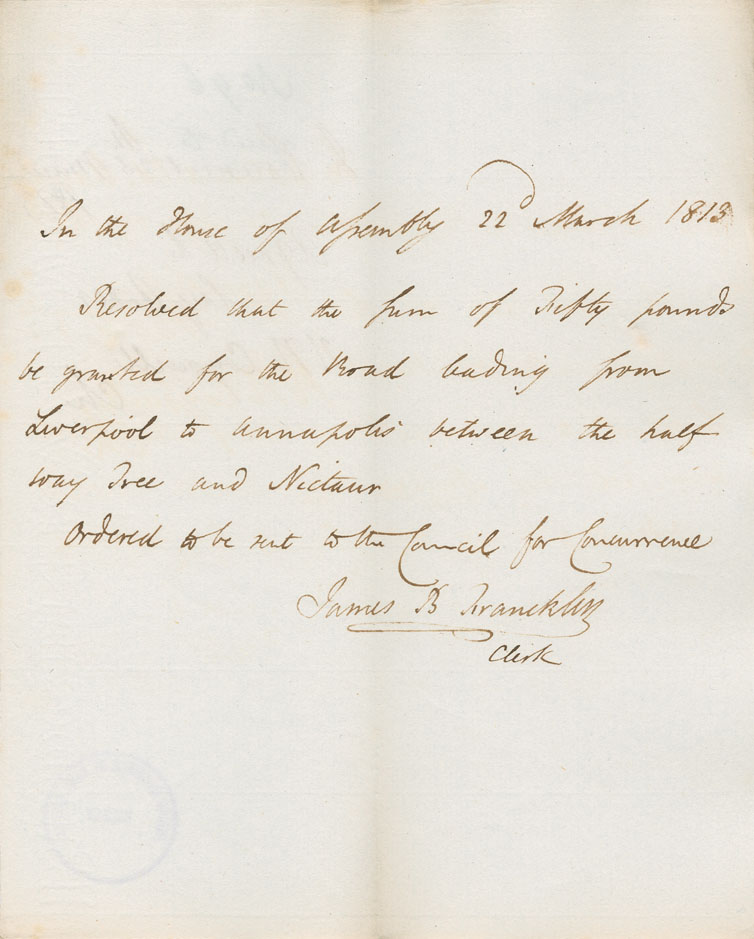 In the House of Assembly 22d March 1813
Resolved that the sum of Fifty pounds
be granted for the Road leading from
Liverpool to Annapolis between the half
way Tree and Nictaux
Ordered to be sent to the Council for Concurrence
James B Francklin
Clerk